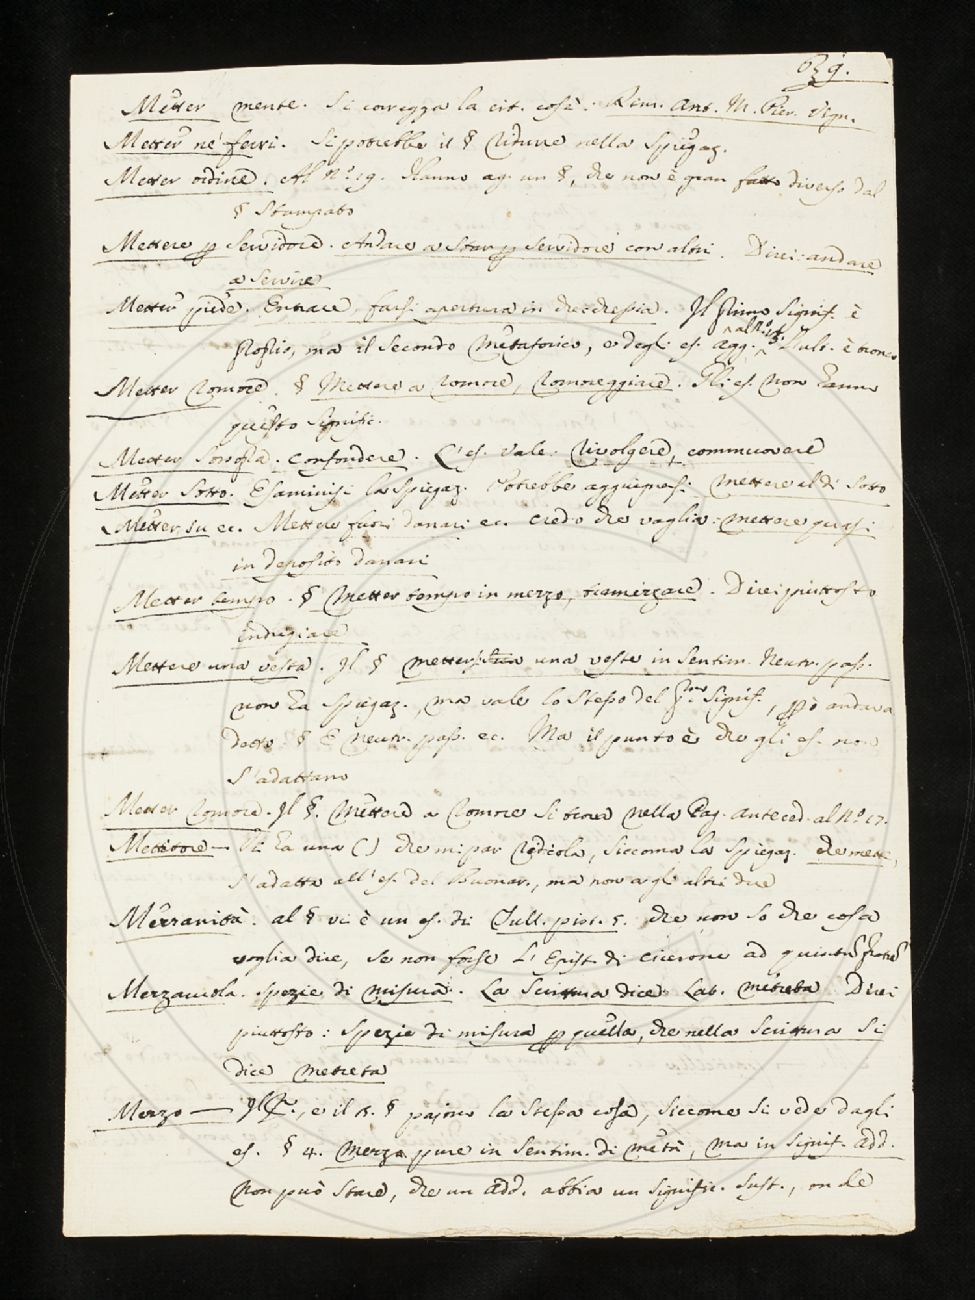 639.
Metter mente. Si corregga la cit. così. Rim. Ant. M. Pier. Vign.
Metter ne' ferri. Si potrebbe il § ridurre nella Spiegaz.
Metter ordine. Al N.º 19. hanno ag. un §, che non è gran fatto diverso dal
§ Stampato
Mettere p servidore. Andare a star p servidore con altri. Direi: andare
a servire
Metter piede. Entrare, farsi apertura in checchessia. Il primo signif. è
proprio, ma il secondo metaforico, e degli es. agg. al N.º è
Metter romore. § Mettere a romore, romoreggiare. Gli es. non hanno
questo signific.
Metter sossopra. Confondere. L'es. vale. rivolgere, commuovere
Metter sotto. Esaminisi la spiegaz. Potrebbe aggiugnersi mettere al di sotto
Metter su ec. Mettere fuori danari ec. credo che vaglia: mettere quasi
in deposito danari
Metter tempo. § Metter tempo in mezzo, tramezzare. Direi piuttosto
Indugiare
Mettere una vesta. Il § mettersi una veste in sentim. Neutr. pass.
non ha spiegaz., ma vale lo stesso del p.mo signif., p ò andava
detto: § E neutr. pass. ec. Ma il punto è che gli es. non
s'adattano
Metter romore. Il §. Mettere a romore si trova nella Pag. anteced. al N.º 17.
Mettitore — Vi ha una () che mi par ridicola, siccome la spiegaz. che mette,
s'adatta all'es. del Buonar., ma non agli altri due
Mezzanità. al § vi è un es. di Tull. pist. 5. che non so che cosa
voglia dire, se non forse l'Epist. di Cicerone ad quintum fratrem
Mezzaruola. spezie di misura. La Scrittura dice. Lat. metreta Direi
piuttosto: spezie di misura p quella, che nella Scrittura si
dice metreta
Mezzo — Il p., e il 18. § pajono la stessa cosa, siccome si vede dagli
es. § 4. mezzo pure in sentim. di metà, ma in signif. add.
Non può stare, che un add. abbia un signific. sust., onde